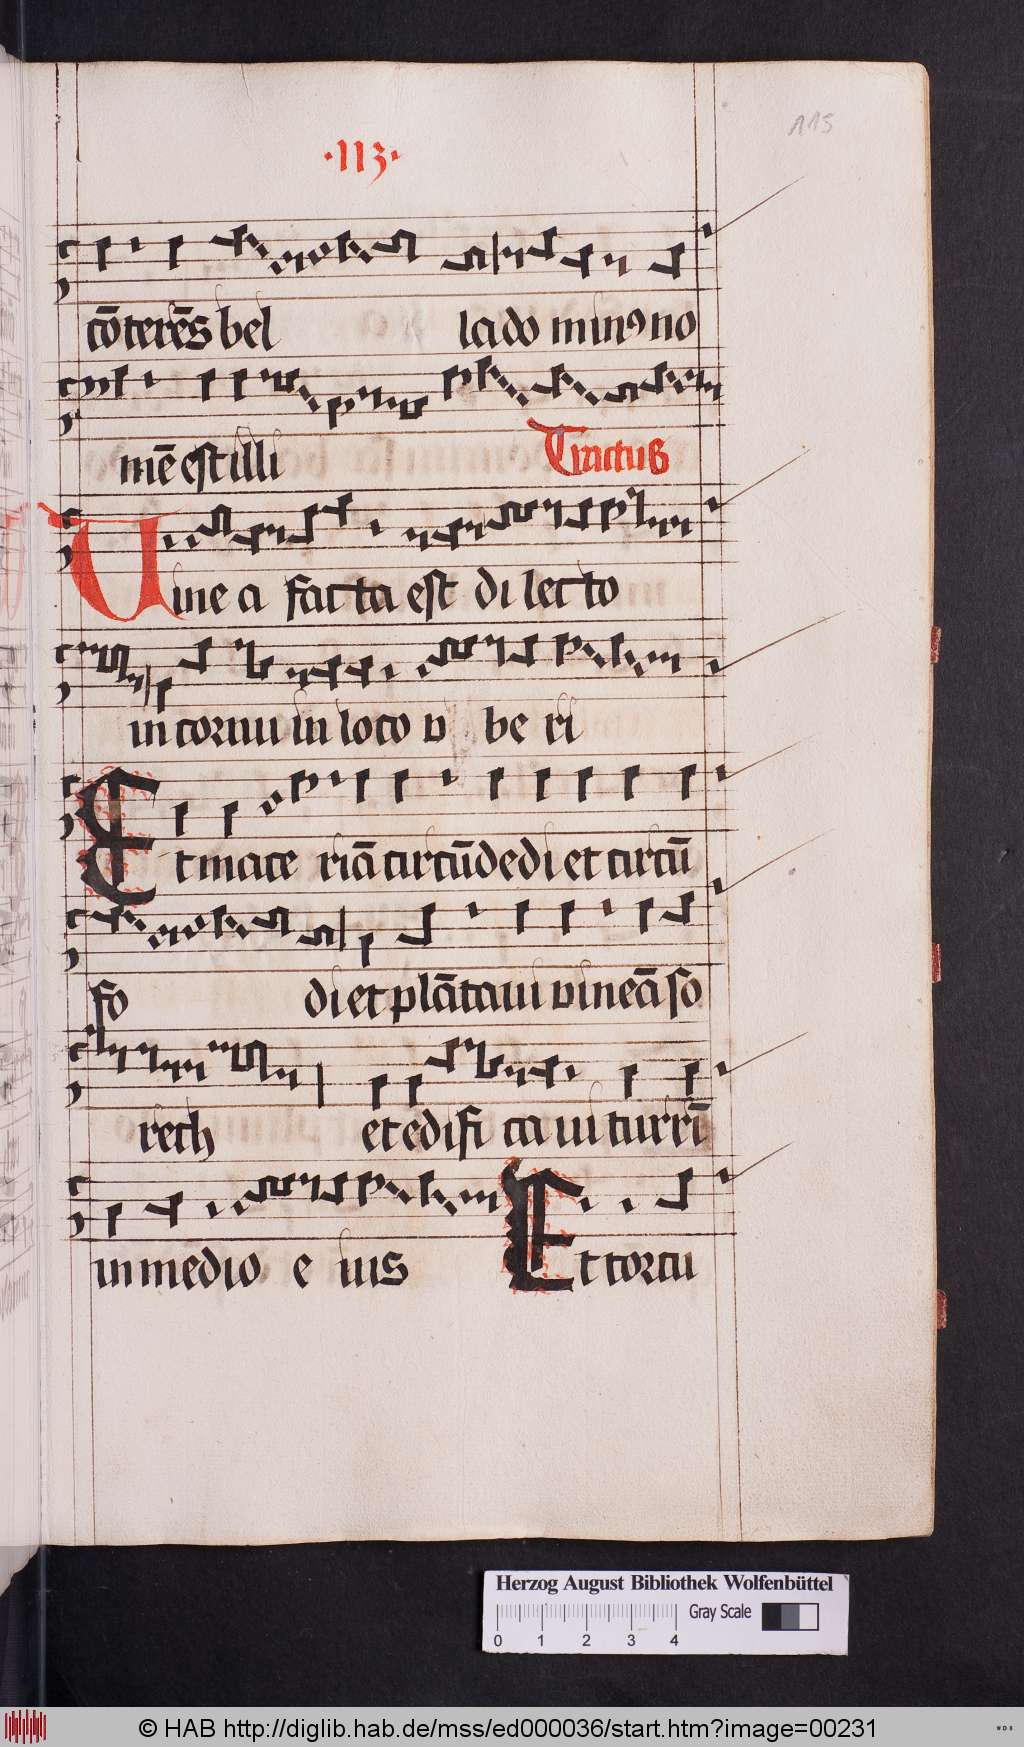 ·113·
115
cōterēs bel la do minꝰ no
mē est illi Tractus
Uine a facta est di lecto
in cornu in loco v be ri
Et mace riā circūdedi et circū
fo di et plātaui vineā so
rech et edifi ca ui turrī
in medio e ius Et torcu
Herzog August Bibliothek Wolfenbüttel
Gray Scale
0 1 2 3 4
© HAB http://diglib.hab.de/mss/ed000036/start.htm?image=00231